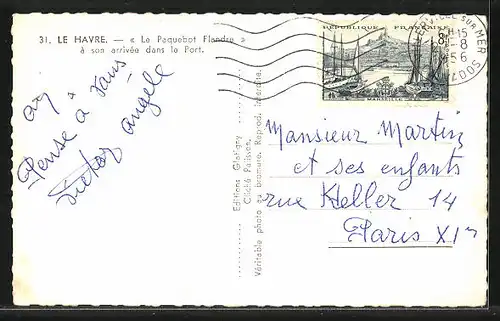 31. LE HAVRE. — « Le Paquebot Flandre »
à son arrivée dans le Port.
on
Pense à vous
Victor Angèle
Editions Glatigny
Cliché Patisson.
Véritable photo au bromure. Reprod. interdite.
REPUBLIQUE FRANÇAISE
8F
MARSEILLE
SUR MER
15
8
56
Monsieur Martin
et ses enfants
rue Keller 14
Paris XIe